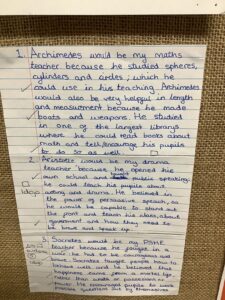 1. Archimedes would be my maths
teacher because he studied spheres,
cylinders and circles; which he
could use in his teaching. Archimedes
would also be very helpful in length
and measurment because he made
boats and weapons. He studied
in one of the largest librarys
where he could read books about
math and tell/encourage his pupils
to do so as well.
2. Aristotle would be my drama
teacher because he opened his
own school and public speaking:
he could teach his pupils about
acting and drama. He believed in
the power of persuasive speach, so
he would be capable to stand out
the front and teach his class, about
and how they need to
be brave and speak up.
3. Socrates would be my PSHE
teacher because he fought in a
war: he has to be courageous and
Socrates taught people how to
behave well and he believed that
happiness came from a moral life
rather than wealth or possessions or
power. He encouraged pupils to work
questions out by themselves